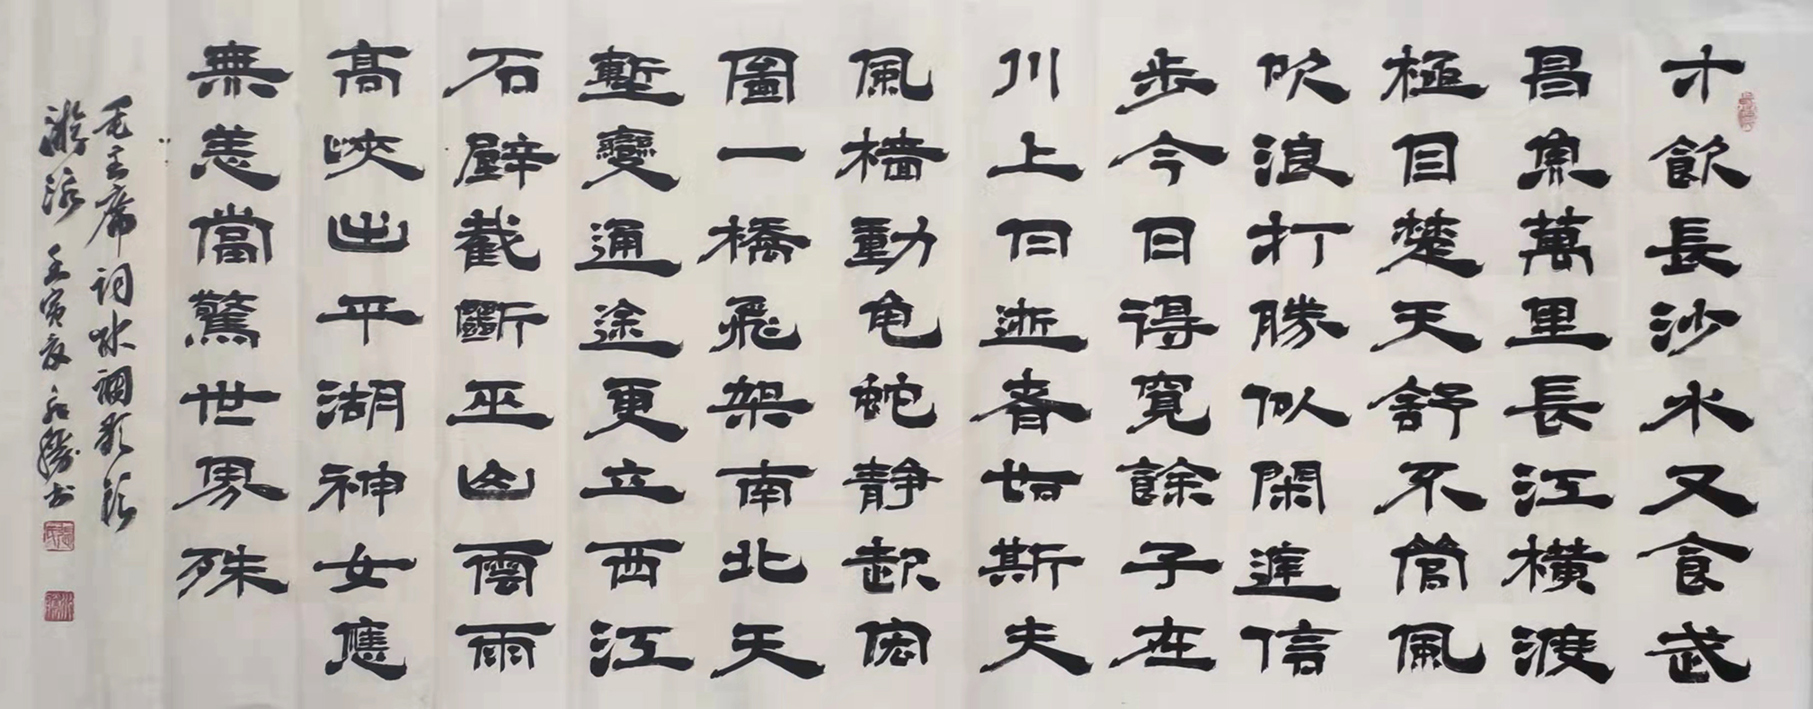 才飲長沙水又食武
昌魚萬里長江橫渡
極目楚天舒不管風
吹浪打勝似閑庭信
步今日得寬餘子在
川上曰逝者如斯夫
風檣動龟蛇静起宏
圖一橋飛架南北天
塹變通途更立西江
石壁截斷巫山雲雨
高峽出平湖神女應
無恙當驚世界殊
毛主席词水調歌頭
游泳 壬寅夏 书